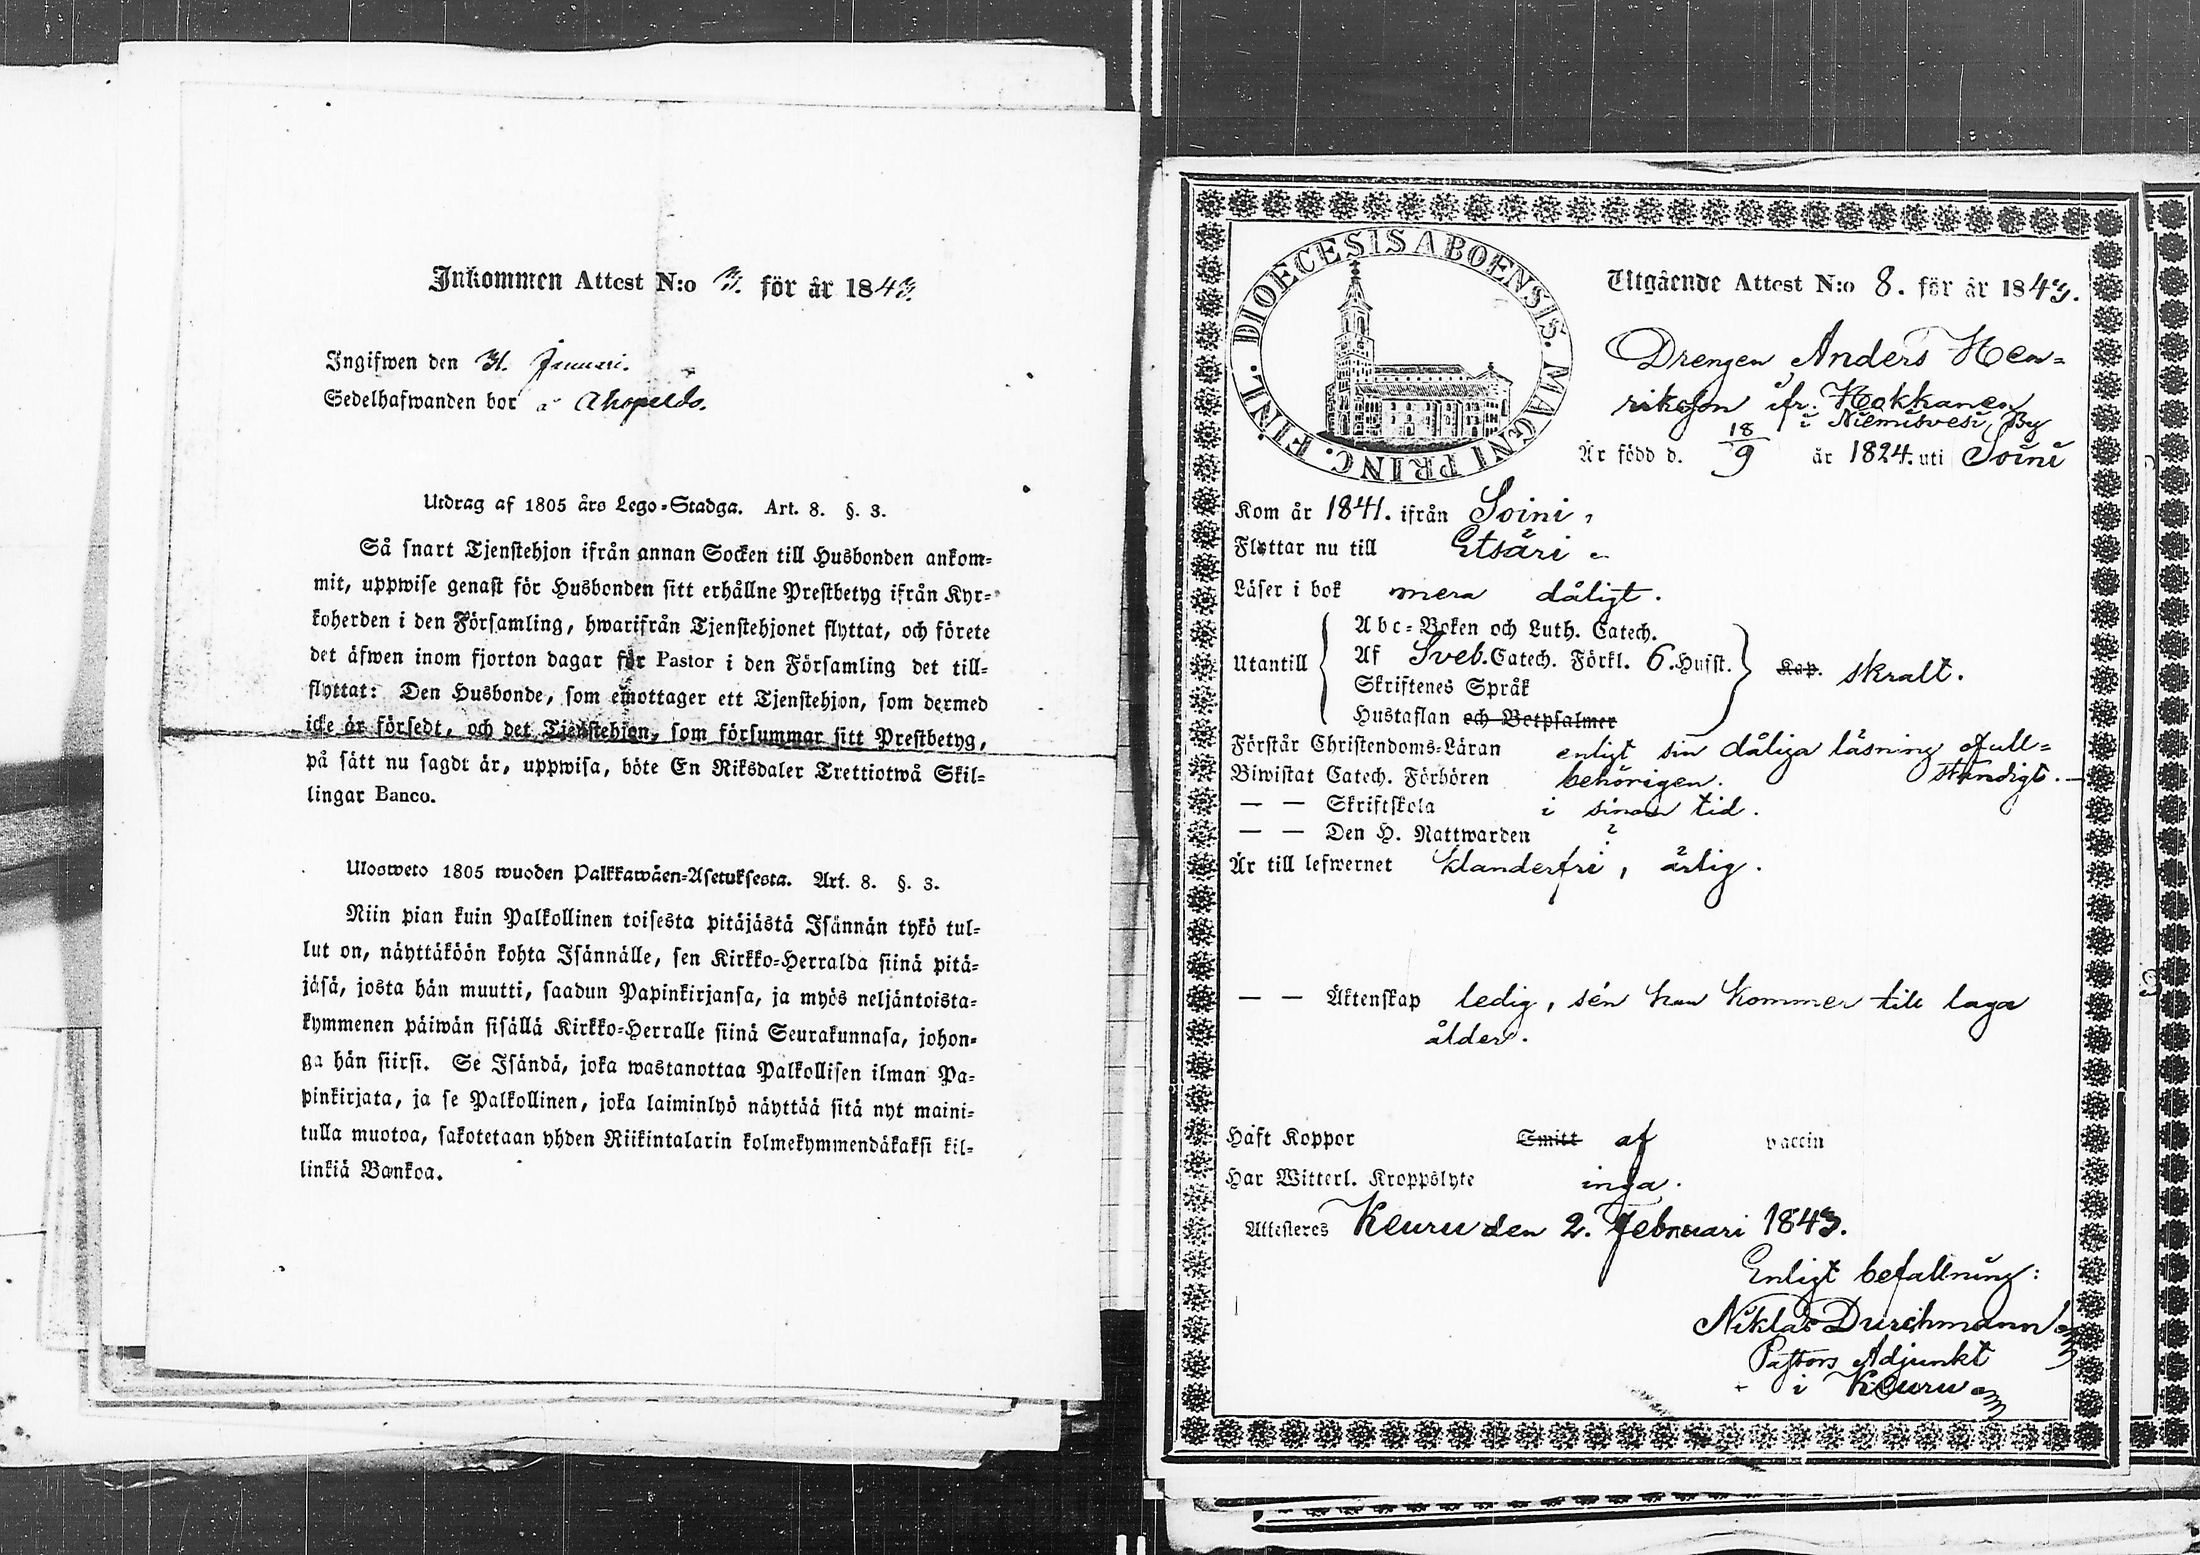 Inkommen Attest N:o 3. för år 1843.
Ingifwen den 31. Januari.
Sedelhafwanden bor å
Utdrag af 1805 års Lego-Stadga. Art. 8. §. 3.
Så snart Tjenstehjon ifrån annan Socken till Husbonden ankom=
mit, uppwise genast för Husbonden sitt erhållne Prestbetyg ifrån Kyr=
koherden i den Församling, hwarifrån Tjenstehjonet flyttat, och förete
det äfwen inom fjorton dagar för Pastor i den Församling det till=
flyttat: Den Husbonde, som emottager ett Tjenstehjon, som dermed
icke är försedt, och det Tjenstehjon, som försummar sitt Prestbetyg,
på sätt nu sagdt är, uppwisa, böte En Riksdaler Trettiotwå Skil=
lingar Banco.
Ulosweto 1805 wuoden Palkkawäen=Asetuksesta. Art. 8. §. 3.
Niin pian kuin Palkollinen toisesta pitäjästä Isännän tykö tul=
lut on, näyttäköön kohta Isännälle, sen Kirkko=Herralda siinä pitä=
jäsä, josta hän muutti, saadun Papinkirjansa, ja myös neljäntoista=
kymmenen päiwän sisällä Kirkko=Herralle siinä Seurakunnasa, johon=
ga hän siirsi. Se Isändä, joka wastanottaa Palkollisen ilman Pa=
pinkirjata, ja se Palkollinen, joka laiminlyö näyttää sitä nyt maini=
tulla muotoa, sakotetaan yhden Riikintalarin kolmekymmendäkaksi kil=
linkiä Bankoa.
DIOECESIS ABOENSIS. MAGNI PRINC. FINL.
Utgående Attest N:o 8. för år 1843.
Drengen Anders Hen=
rikson ifr. Hokkanen
i Niemisvesi By
Är född d. 18/9 år 1824. uti Soini
Kom år 1841. ifrån Soini,
Flyttar nu till Etsäri
Läser i bok mera dåligt.
Abc=Boken och Luth. Catech.
Utantill Af Sveb. Catech. Förkl. 6. Hufst. Kap. skralt.
Skriftenes Språk
Hustaflan och Botpsalmer
Förstår Christendoms=Läran enligt sin dåliga läsning ofull=
ständigt.
Biwistat Catech. Förhören behörigen.
— — Skriftskola i sinom tid.
— — Den H. Nattwarden
Är till lefwernet klanderfri, ärlig.
— — Äktenskap ledig, sen han kommer till laga
ålder.
Haft Koppor Smitt af vaccin
Har Witterl. Kroppslyte inga.
Attesteres Keuru den 2. Februari 1843.
Enligt befallning:
Niklas Durchmann
Pastors Adjunkt
i Keuru